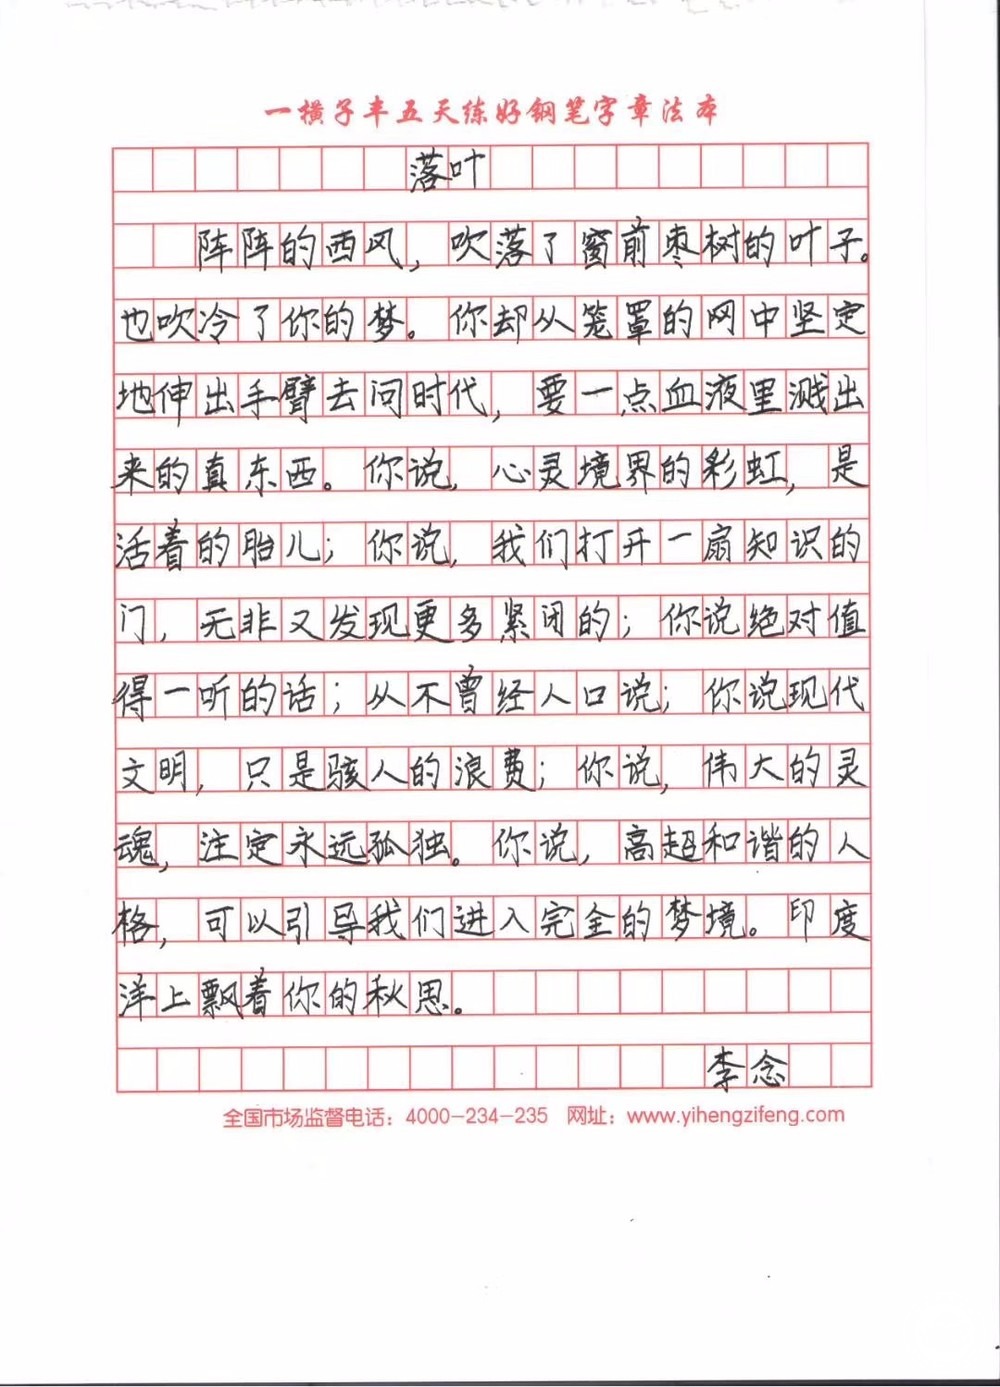 一横子丰五天练好钢笔字章法本
落叶
阵阵的西风，吹落了窗前枣树的叶子。
也吹冷了你的梦。你却从笼罩的网中坚定
地伸出手臂去问时代，要一点血液里溅出
来的真东西。你说，心灵境界的彩虹，是
活着的胎儿；你说，我们打开一扇知识的
门，无非又发现更多紧闭的；你说绝对值
得一听的话；从不曾经人口说；你说现代
文明，只是骇人的浪费；你说，伟大的灵
魂，注定永远孤独。你说，高超和谐的人
格，可以引导我们进入完全的梦境。印度
洋上飘着你的秋思。
李念
全国市场监督电话：4000-234-235 网址：www.yihengzifeng.com